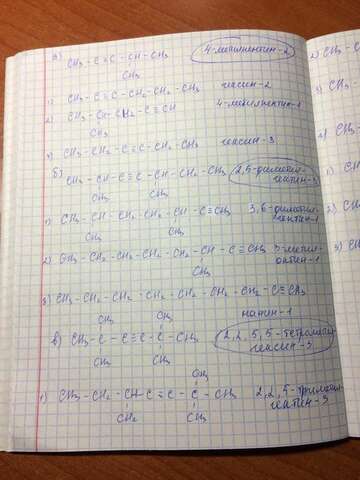 а) CH₃ - C ≡ C - CH - CH₃ 4-метилпентин-2
CH₃
1) CH₃ - C ≡ C - CH₂ - CH₂ - CH₃ гексин-2
2) CH₃ - CH - CH₂ - C ≡ CH 4-метилпентин-1
CH₃
3) CH₃ - CH₂ - C ≡ C - CH₂ - CH₃ гексин-3
б) CH₃ - CH - C ≡ C - CH - CH₂ - CH₃ 2,5-диметил-
CH₃ CH₃ гептин-3
1) CH₃ - CH - CH₂ - CH₂ - CH - C ≡ CH₃ 3,6-диметил-
CH₃ CH₃ гептин-1
2) CH₃ - CH₂ - CH₂ - CH₂ - CH₂ - CH - C ≡ CH₃ 3-метил-
CH₃ октин-1
3) CH₃ - CH₂ - CH₂ - CH₂ - CH₂ - CH₂ - CH₂ - C ≡ CH₃
нонин-1
CH₃ CH₃
в) CH₃ - C - C ≡ C - C - CH₃ 2,2,5,5-тетраметил-
CH₃ CH₃ гексин-3
CH₃
1) CH₃ - CH₂ - CH - C ≡ C - C - CH₃ 2,2,5-триметил-
CH₃ CH₃ гептин-3
2) CH₃
3)
1)
2)
3)